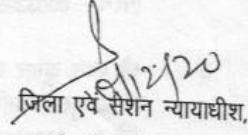 जिला एवं सेशन न्यायाधीश,